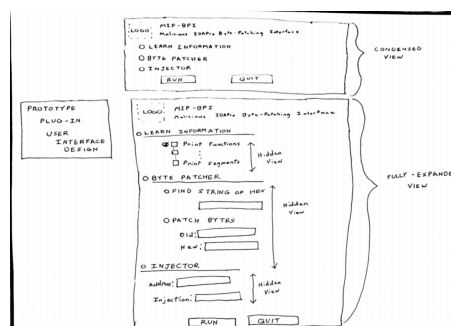 LOGO
MIP-BPI
Malicious IDAPro Byte-Patching Interface
LEARN INFORMATION
BYTE PATCHER
INJECTOR
RUN
QUIT
CONDENSED
VIEW
PROTOTYPE
PLUG-IN
USER
INTERFACE
DESIGN
LOGO
MIP-BPI
Malicious IDAPro Byte-Patching Interface
LEARN INFORMATION
Print Functions
Print Segments
Hidden
View
BYTE PATCHER
FIND STRING OF HEX
PATCH BYTES
Old:
New:
Hidden
View
INJECTOR
Address:
Injection:
Hidden
View
RUN
QUIT
FULLY-EXPANDED
VIEW